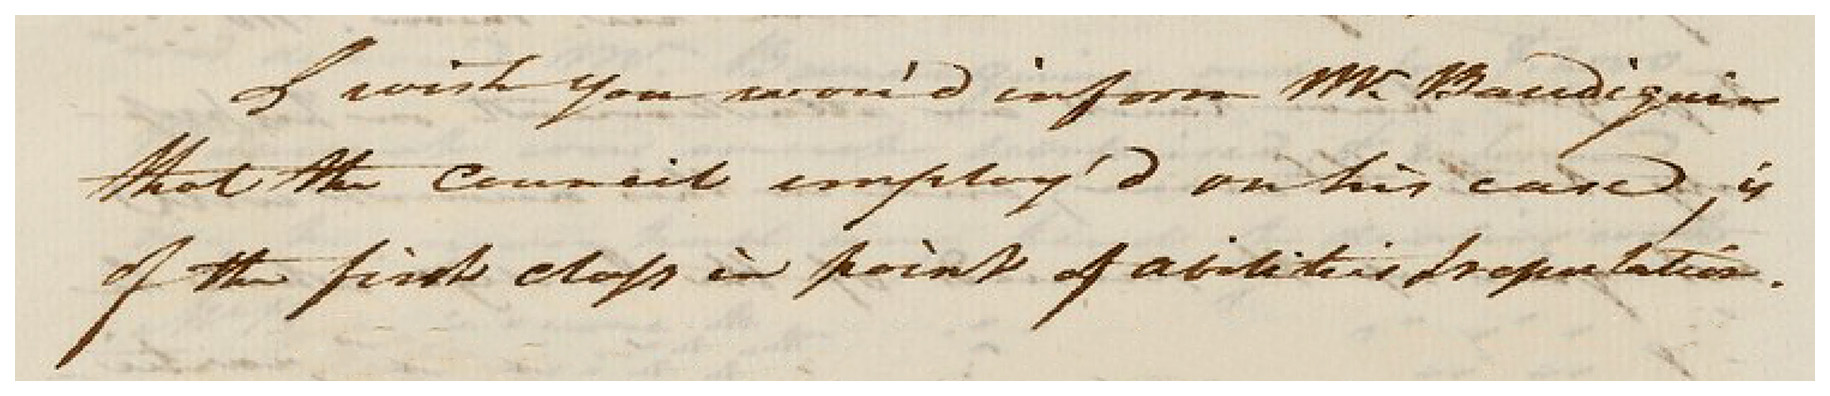 I wish you wou'd inform Mr. Baudiquin
that the Council employ'd on his case is
of the first class in point of abilities & reputation.